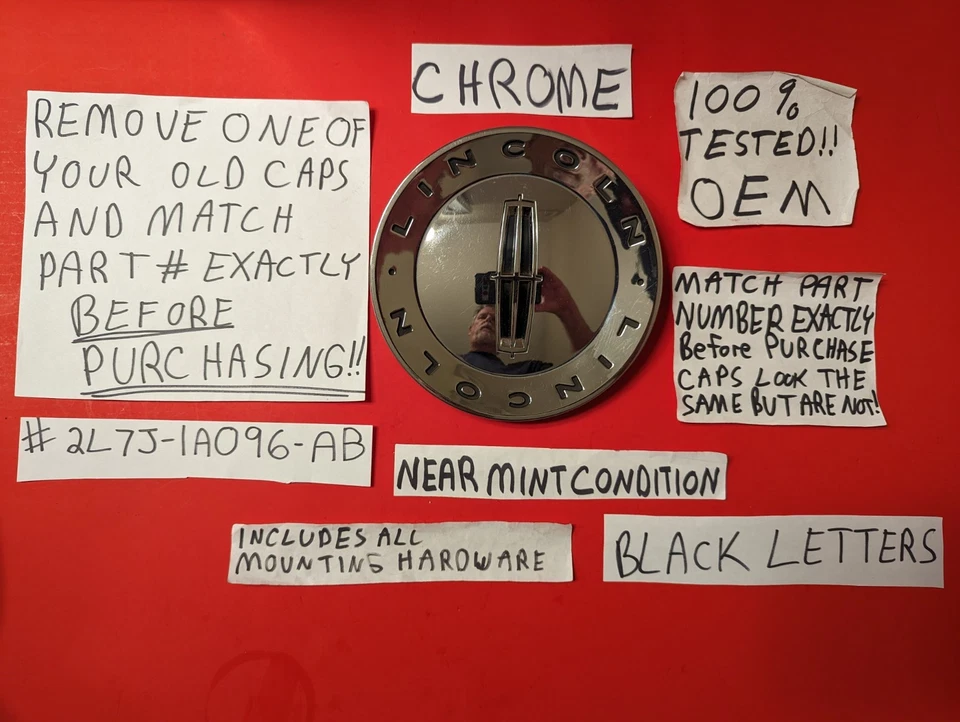 CHROME
100%
TESTED!!
OEM
REMOVE ONE OF
YOUR OLD CAPS
AND MATCH
PART # EXACTLY
BEFORE
PURCHASING!!
LINCOLN
LINCOLN
MATCH PART
NUMBER EXACTLY
Before PURCHASE
CAPS LOOK THE
SAME BUT ARE NOT!
#2L7J-1A096-AB
NEAR MINT CONDITION
INCLUDES ALL
MOUNTING HARDWARE
BLACK LETTERS